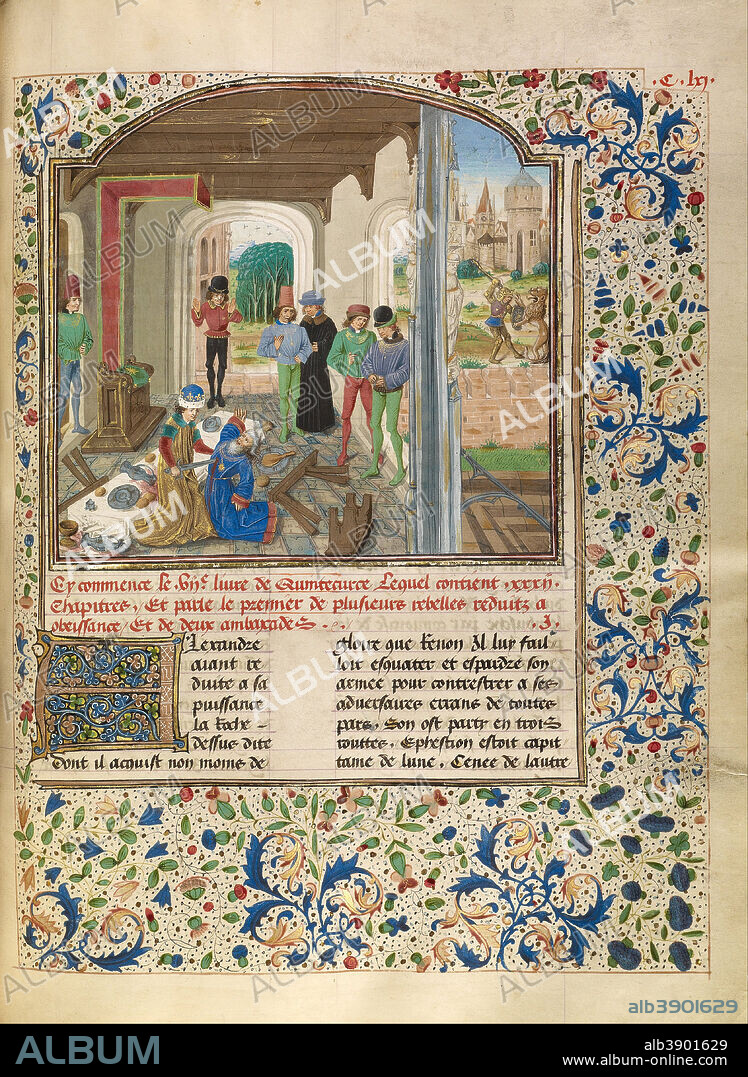 .C. lxi.
Cy commence le .viije livre de Quintecurce Lequel contient .xxxij.
Chapitres, Et parle le premier de plusieurs rebelles reduitz a
obeissance, Et de deux ambaxades. .j.
Alexandre
aiant re
duite a sa
puissance
la Roche
dessus dite
dont il acquist non moins de
gloire que Renon Il luy fail
loir esquater et espardre son
armee pour contrestrer a ses
adversaires errans de toutes
pars, Son ost party en trois
routtes, Ephestion estoit capi
taine de lune, Cenee de lautre
ALBUM
alb3901629
ALBUM
alb3901629
www.album-online.com